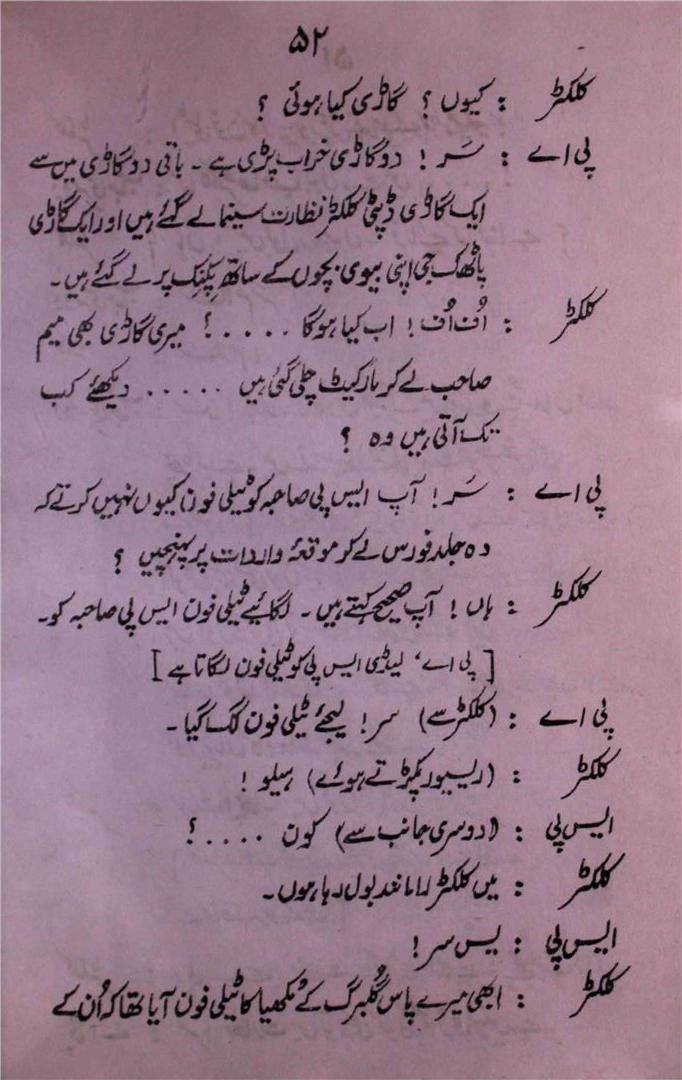 ۵۲
کلکٹر : کیوں ؟ گاڑی کیا ہوئی ؟
پی اے : سَر ! دو گاڑی خراب پڑی ہے ۔ باقی دو گاڑی میں سے
ایک گاڑی ڈپٹی کلکٹر نظارت سینما لے گئے ہیں اور ایک گاڑی
پاٹھک جی اپنی بیوی بچوں کے ساتھ پِکنِک پر لے گئے ہیں ۔
کلکٹر : اُف اُف ! اب کیا ہوگا . . . . ! میری گاڑی بھی میم
صاحب لے کر مارکیٹ چلی گئی ہیں . . . . . دیکھئے کب
تک آتی ہیں وہ ؟
پی اے : سَر ! آپ ایس پی صاحبہ کو ٹیلی فون کیوں نہیں کرتے کہ
وہ جلد فورس لے کر موقعۂ واردات پر پہنچیں ؟
کلکٹر : ہاں ! آپ صحیح کہتے ہیں ۔ لگائیے ٹیلی فون ایس پی صاحبہ کو ۔
[ پی اے ، لیڈی ایس پی کو ٹیلی فون لگاتا ہے ]
پی اے : (کلکٹر سے) سر ! لیجئے ٹیلی فون لگ گیا ۔
کلکٹر : (ریسیور پکڑتے ہوئے) ہیلو !
ایس پی : (دوسری جانب سے) کون . . . . ؟
کلکٹر : میں کلکٹر راما نند بول رہا ہوں ۔
ایس پی : یس سر !
کلکٹر : ابھی میرے پاس گُلبرگ کے مُکھیا کا ٹیلی فون آیا تھا کہ اُن کے